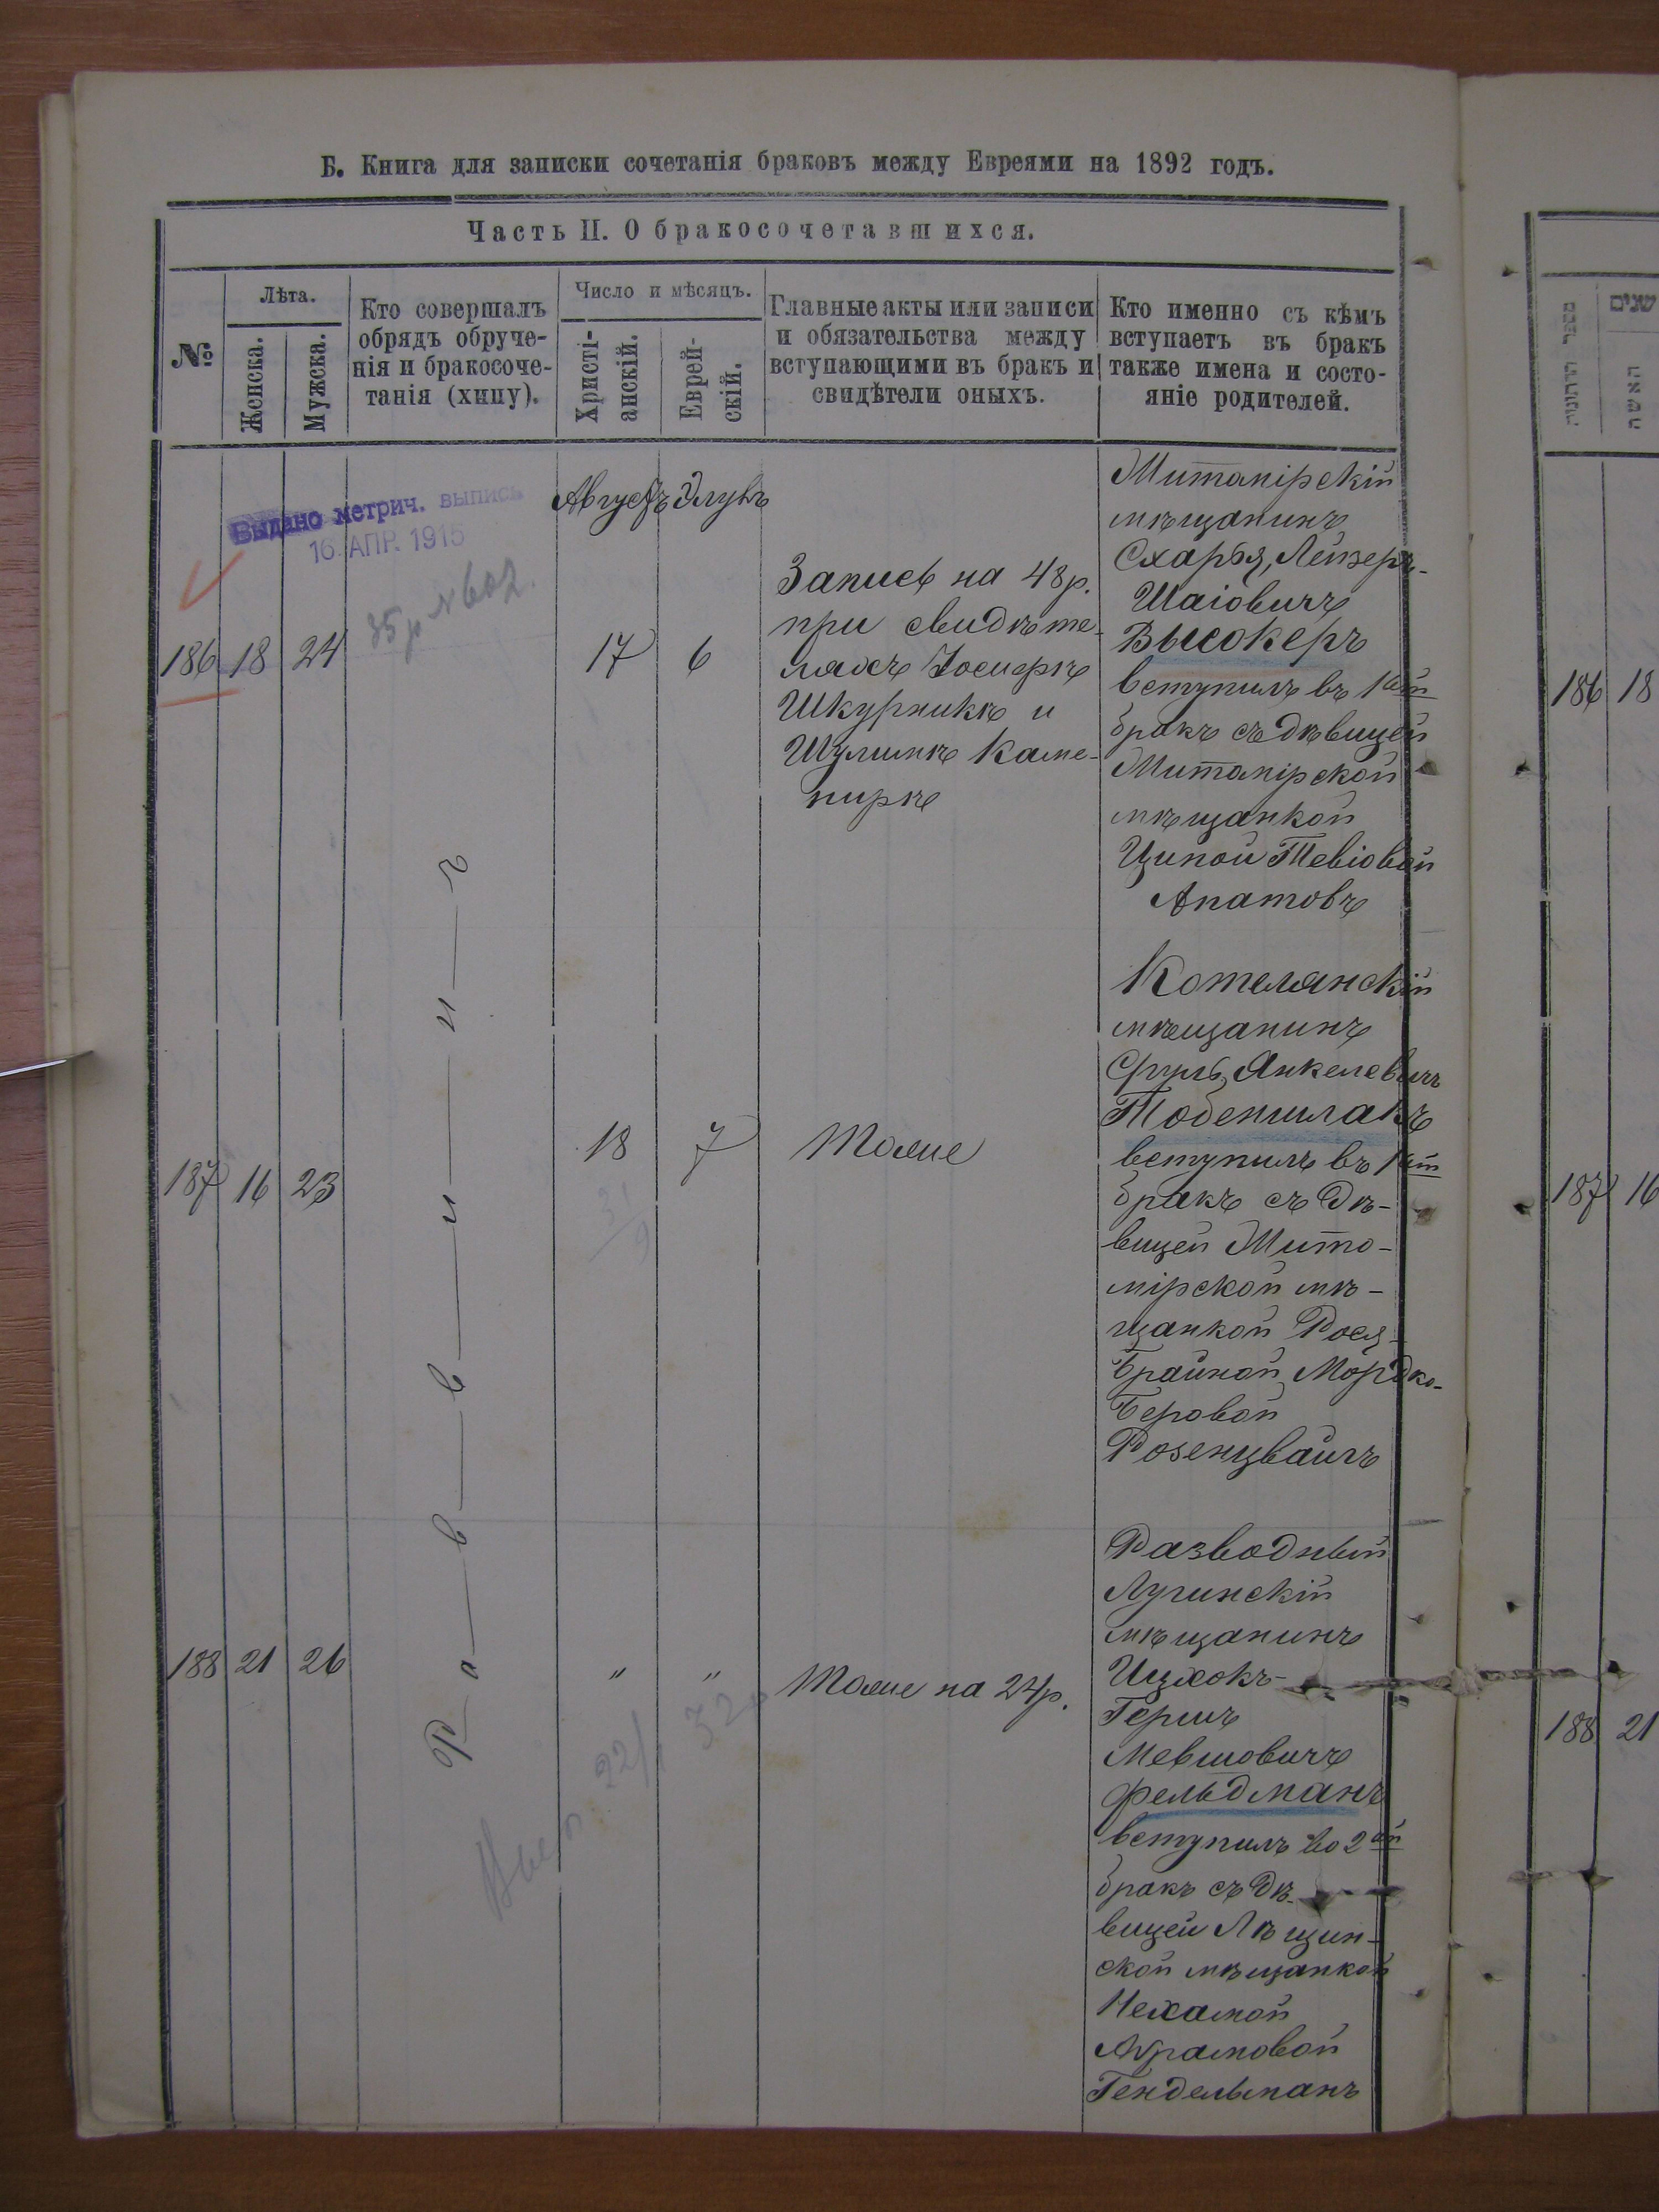 Б. Книга для записки сочетанія браковъ между Евреями на 1892 годъ.
Часть II. О бракосочетавшихся.
№
Лѣта.
Женска.
Мужска.
Кто совершалъ
обрядъ обруче-
нія и бракосоче-
танія (хипу).
Число и мѣсяцъ.
Христі-
анскій.
Еврей-
скій.
Главные акты или записи
и обязательства между
вступающими въ бракъ и
свидѣтели оныхъ.
Кто именно съ кѣмъ
вступаетъ въ бракъ
также имена и состо-
яніе родителей.
Выдано метрич. выпись
16. АПР. 1915
Августъ Элулъ
186 18 24
17 6
Запись на 48 р.
при свидѣте-
ляхъ Іосифѣ
Шкурникѣ и
Шулимѣ Каме-
нирѣ
Житомірскій
мѣщанинъ
Схарья, Лейзеръ-
Шаіовичъ
Высокеръ
вступилъ въ 1ый
бракъ съ дѣвицей
Житомірской
мѣщанкой
Ципой Тевіовой
Апатовъ
Р а в в и н ъ
187 16 23
18 7
Тоже
Котелянскій
мѣщанинъ
Сруль Янкелевичъ
Тобеншлакъ
вступилъ въ 1ый
бракъ съ дѣ-
вицей Жито-
мірской мѣ-
щанкой Рося-
Брайной Мордко-
Беровой
Розенцвайгъ
188 21 26
" "
Тоже на 24 р.
Разводный
Лугинскій
мѣщанинъ
Ицхокъ-
Гершъ
Мевшовичъ
Фельдманъ
вступилъ во 2ой
бракъ съ дѣ-
вицей Лѣщин-
ской мѣщанкой
Нехамой
Абрамовой
Гендельманъ
שנים
האשה
186 18
187 16
188 21